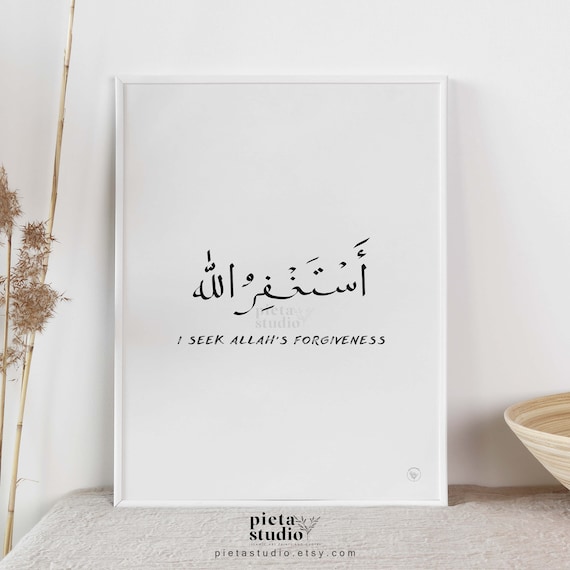 أَسْتَغْفِرُ الله
pieta
studio
I SEEK ALLAH'S FORGIVENESS
pieta
studio
pietastudio.etsy.com